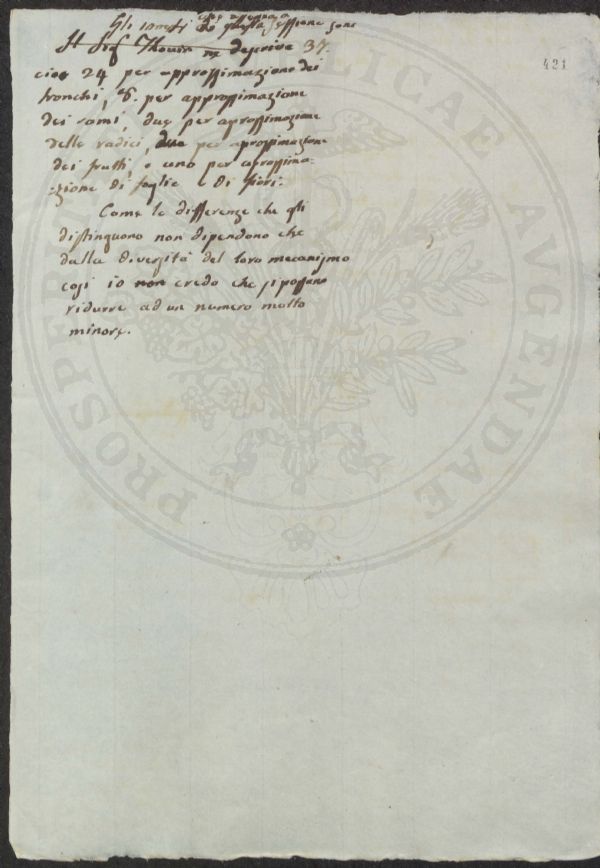 421
Gli innesti che questa sessione sono
Il Prof Thouin ne descrive 37.
cioe 24 per approssimazione dei
tronchi, 8. per approssimazione
dei rami, due per aprossimazione
delle radici, due per aprossimazione
dei frutti, e uno per aprossima-
zione di foglie e di fiori.
Come le differenze che gli
distinguono non dipendono che
dalla diversità del loro mecanismo
cosi io non credo che si possano
ridurre ad un numero molto
minore.
PROSPERITATI PUBLICAE AUGENDAE